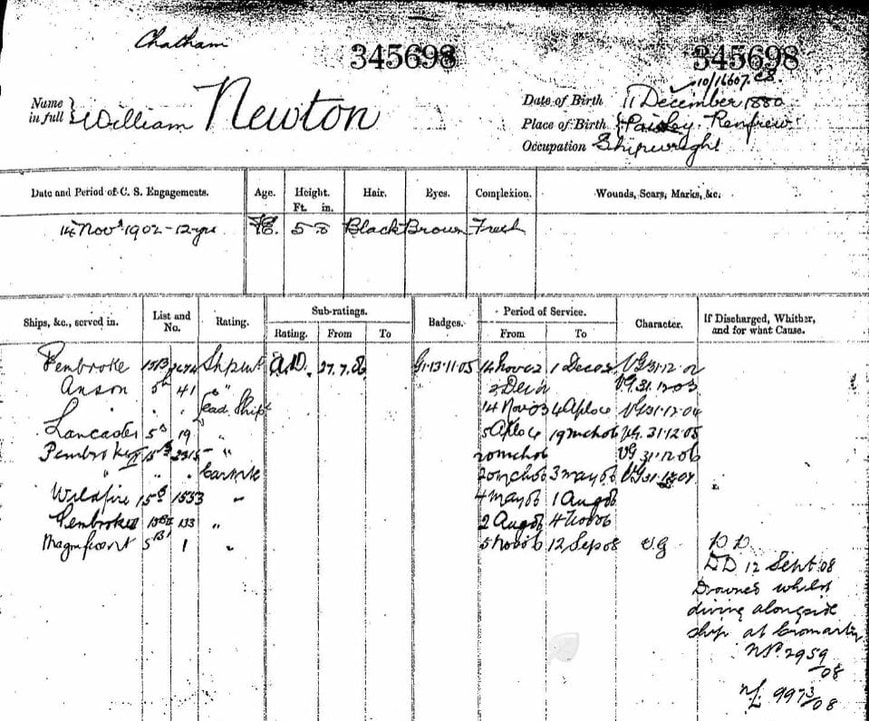 Chatham
345698 345698
10/16607.08
Name in full } William Newton
Date of Birth 11 December 1880
Place of Birth Paisley Renfrew
Occupation Shipwright
Date and Period of C. S. Engagements. Age. Height. Ft. in. Hair. Eyes. Complexion. Wounds, Scars, Marks, &c.
14 Novr 1902 - 12 yrs 5 8 Black Brown Fresh
Ships, &c., served in. List and No. Rating. Sub-ratings. Rating. From To Badges. Period of Service. From To Character. If Discharged, Whither, and for what Cause.
Pembroke Shpwt 27.7.06 G1.13.11.05 14 Nov 02 1 Dec 02 VG 31.12.02
Anson 5A 41 " 2 Dec 02 VG. 31.12.03
Lead Shipt 14 Nov 03 4 Ap 04 VG 31.12.04
Lancaster 5A 19 " 5 Ap 04 19 Mch 06 VG. 31.12.05
Pembroke II " 20 Mch 06 VG 31.12.06
" 20 Mch 06 3 May 06 VG 31.12.07
Wildfire 15A 1553 " 4 May 06 1 Aug 06
Pembroke 133 " 2 Aug 06 4 Nov 06
Magnificent 1 " 5 Nov 06 12 Sep 08 V.G D D
DD 12 Sept 08
Drowned whilst
diving alongside
ship at Cromarty
NP 2959/08
NL 9973/08